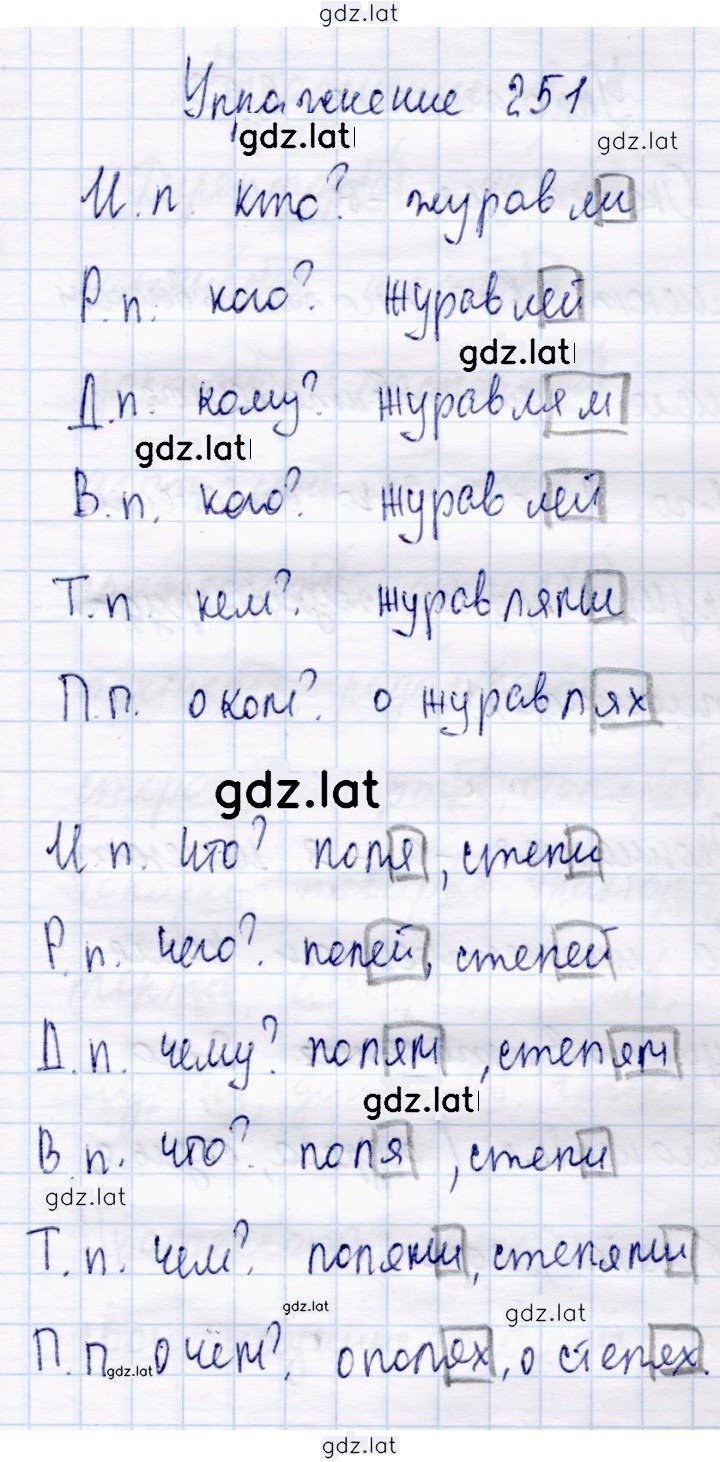 gdz.lat
Упражнение 251
gdz.lat
gdz.lat
И.п. кто? журавли
Р.п. кого? журавлей
gdz.lat
Д.п. кому? журавлям
gdz.lat
В.п. кого? журавлей
Т.п. кем? журавлями
П.п. о ком? о журавлях
gdz.lat
И.п. что? поля, степи
Р.п. чего? полей, степей
Д.п. чему? полям, степям
gdz.lat
В.п. что? поля, степи
gdz.lat
Т.п. чем? полями, степями
gdz.lat
gdz.lat
П.п. о чём? о полях, о степях.
gdz.lat
gdz.lat